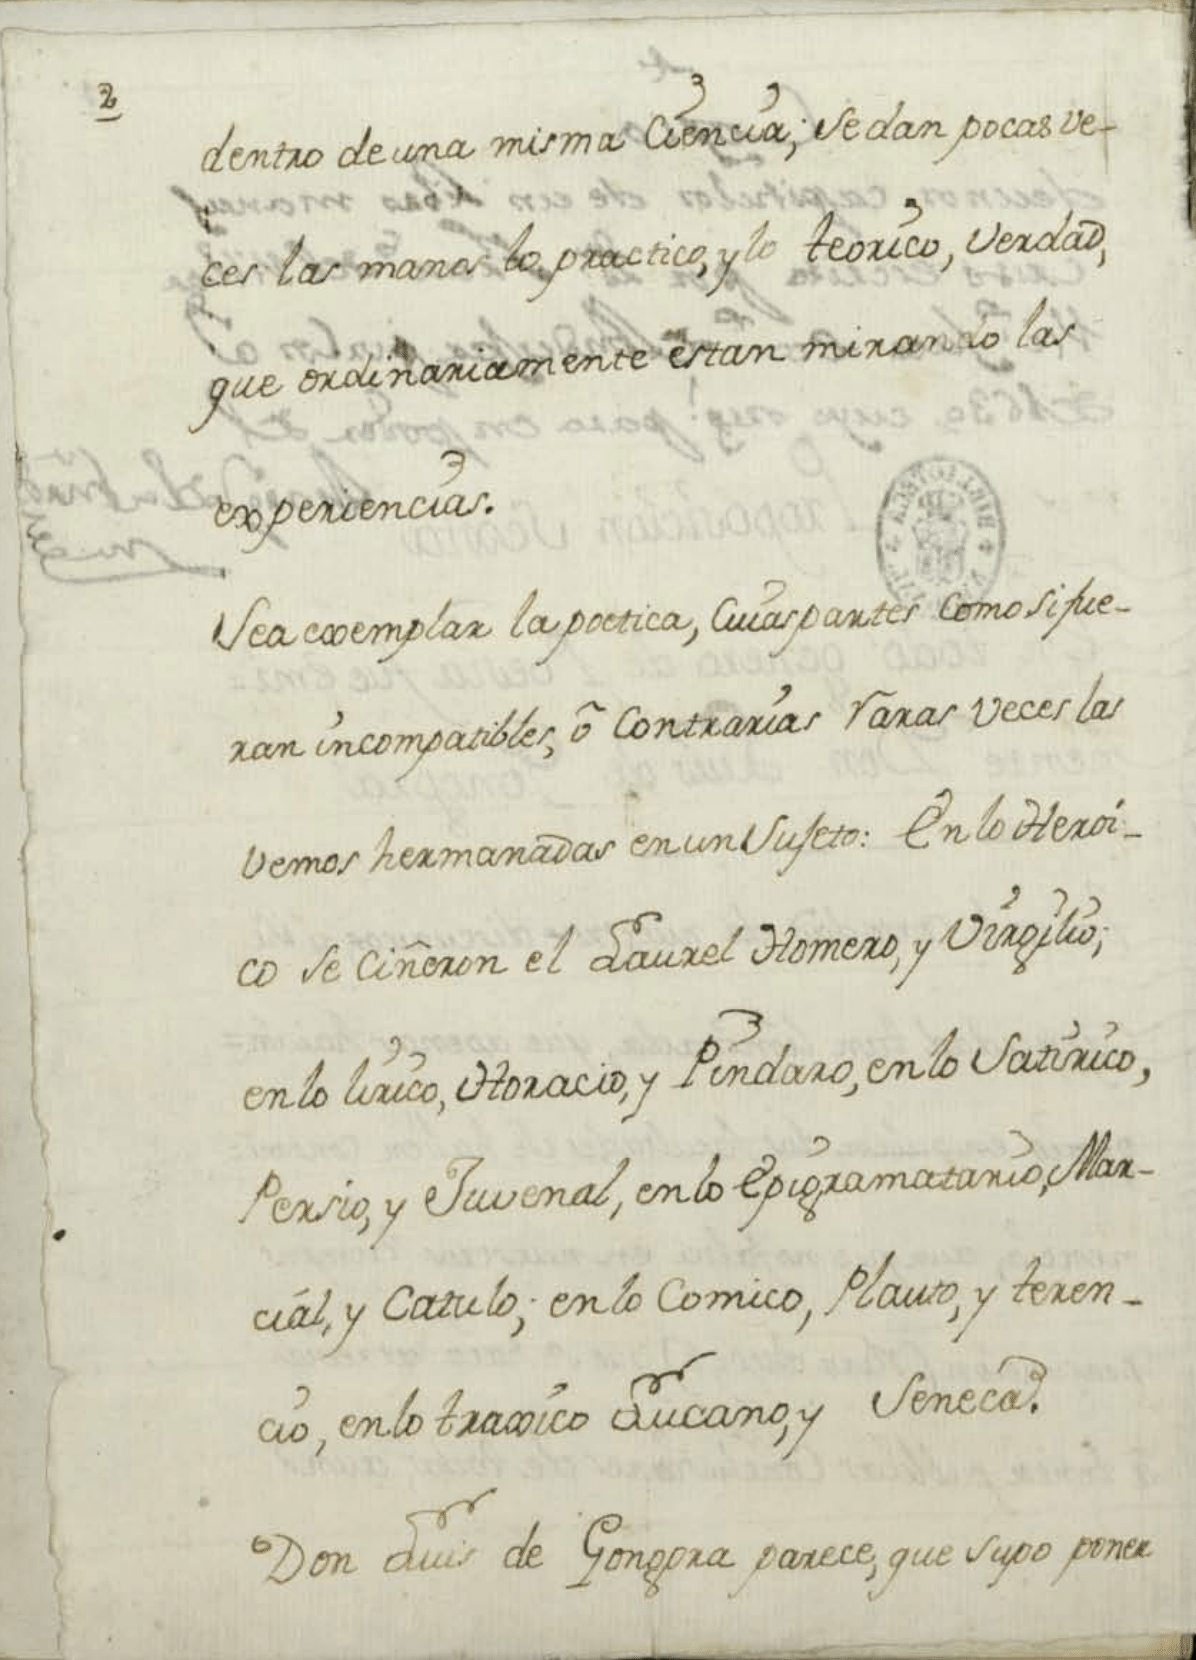 2
dentro de una misma Ciencia; se dan pocas ve-
ces las manos lo practico, y lo teorico, Verdad,
que ordinariamente estan mirando las
experiencias.
Sea exemplar la poetica, Cuias partes como si fue-
ran incompatibles, ô Contrarias raras veces las
vemos hermanadas en un Sujeto: En lo Heroi-
co se ciñeron el Laurel Homero, y Virgilio;
en lo lirico, Horacio, y Pindaro, en lo Satirico,
Persio, y Juvenal, en lo Epigramatario, Mar-
cial, y Catulo; en lo Comico, Plauto, y teren-
cio, en lo traxico Lucano, y Seneca.
Don Luis de Gongora parece, que supo poner